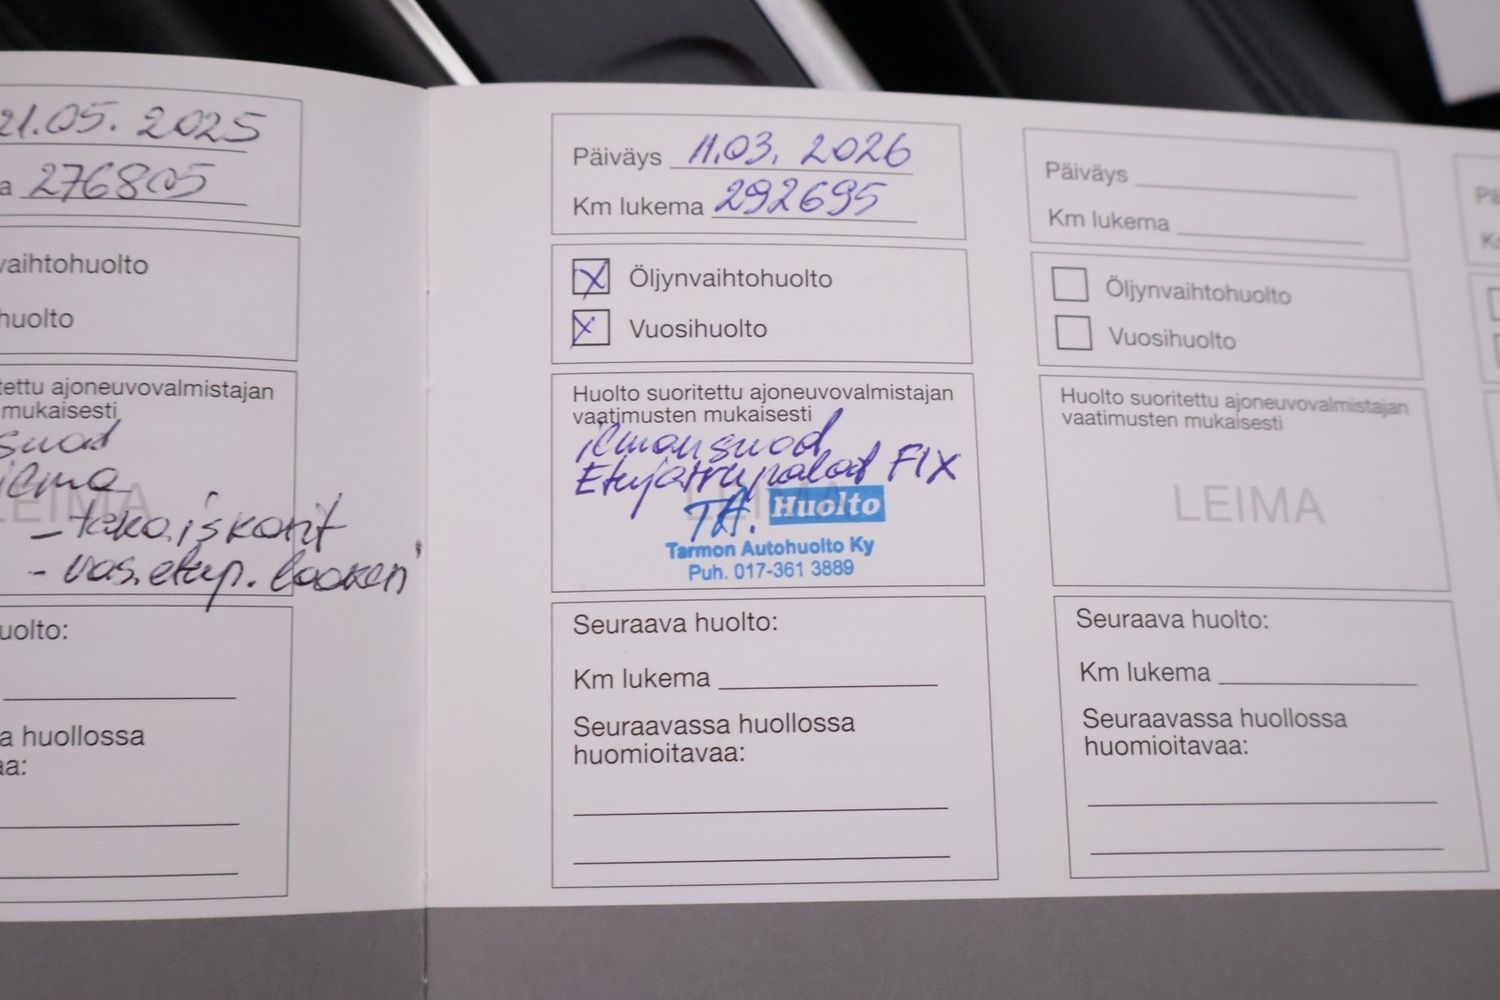 21.05. 2025
a 276805
vaihtohuolto
huolto
tettu ajoneuvovalmistajan
mukaisesti
suod
ilma
LEIMA
- taka.iskont
- vas.etup.
uolto:
a huollossa
aa:
Päiväys 11.03. 2026
Km lukema 292695
X Öljynvaihtohuolto
X Vuosihuolto
Huolto suoritettu ajoneuvovalmistajan
vaatimusten mukaisesti
ilmansuod
Etujarrupalat FIX
LEIMA
TA. Huolto
Tarmon Autohuolto Ky
Puh. 017-361 3889
Seuraava huolto:
Km lukema
Seuraavassa huollossa
huomioitavaa:
Päiväys
Km lukema
Öljynvaihtohuolto
Vuosihuolto
Huolto suoritettu ajoneuvovalmistajan
vaatimusten mukaisesti
LEIMA
Seuraava huolto:
Km lukema
Seuraavassa huollossa
huomioitavaa: